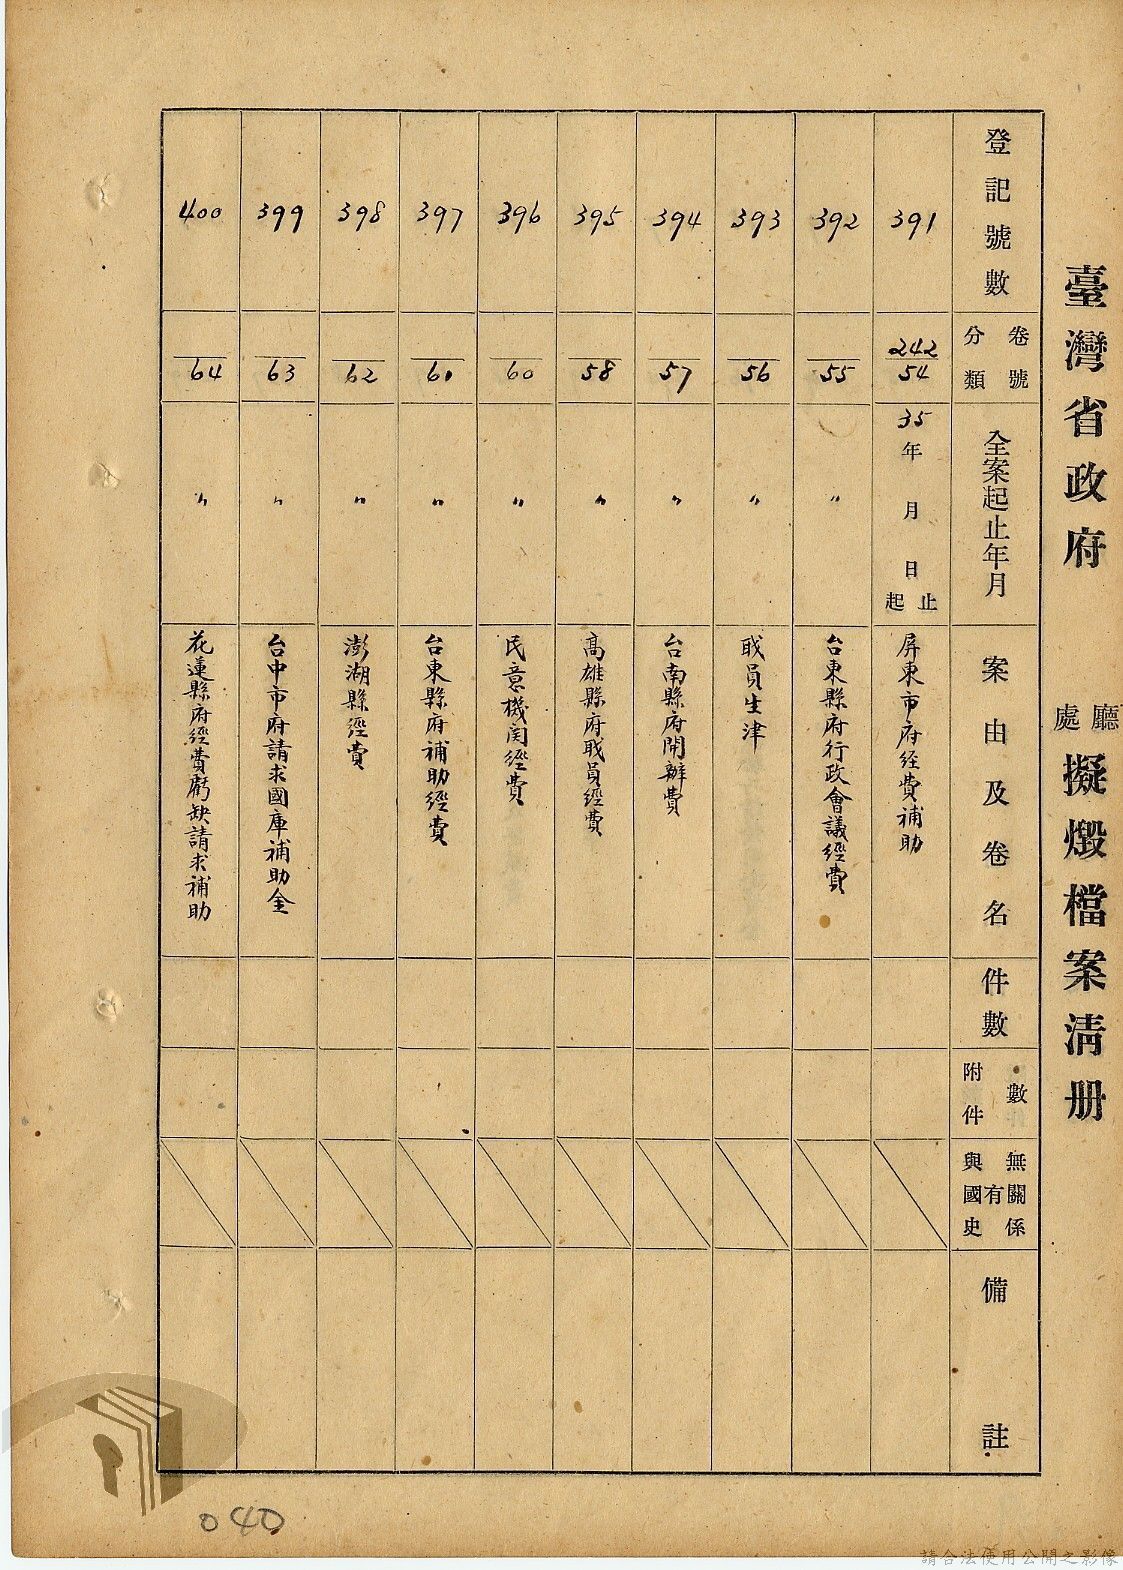 臺灣省政府 廳處 擬燬檔案清册
登記號數 卷號分類 全案起止年月 案由及卷名 件數 附件數 與國史有無關係 備註
391 242/54 35年 月 日 起止 屏東市府経費補助
392 55 〃 台東縣府行政會議經費
393 56 〃 職員生津
394 57 〃 台南縣府開辦費
395 58 〃 高雄縣府職員經費
396 60 〃 民意機関經費
397 60 〃 台東縣府補助經費
398 62 〃 澎湖縣經費
399 63 〃 台中市府請求國庫補助金
400 64 〃 花蓮縣府經費虧缺請求補助
040
請合法使用公開之影像